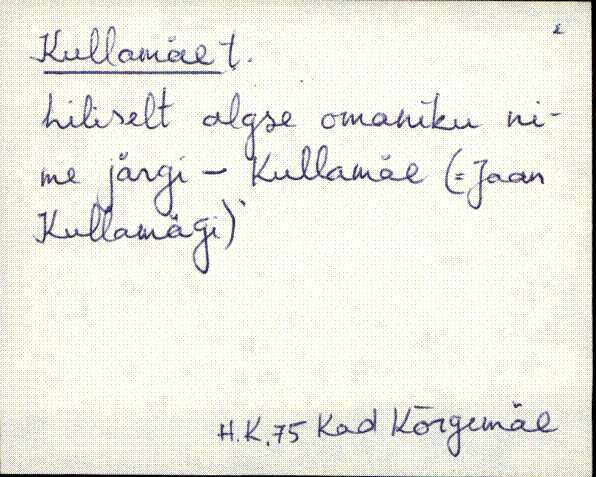 Kullamäe t.
hiliselt algse omaniku ni-
me järgi – Kullamäe (= Jaan
Kullamägi)
H.K, 75 Kad Kõrgemäe